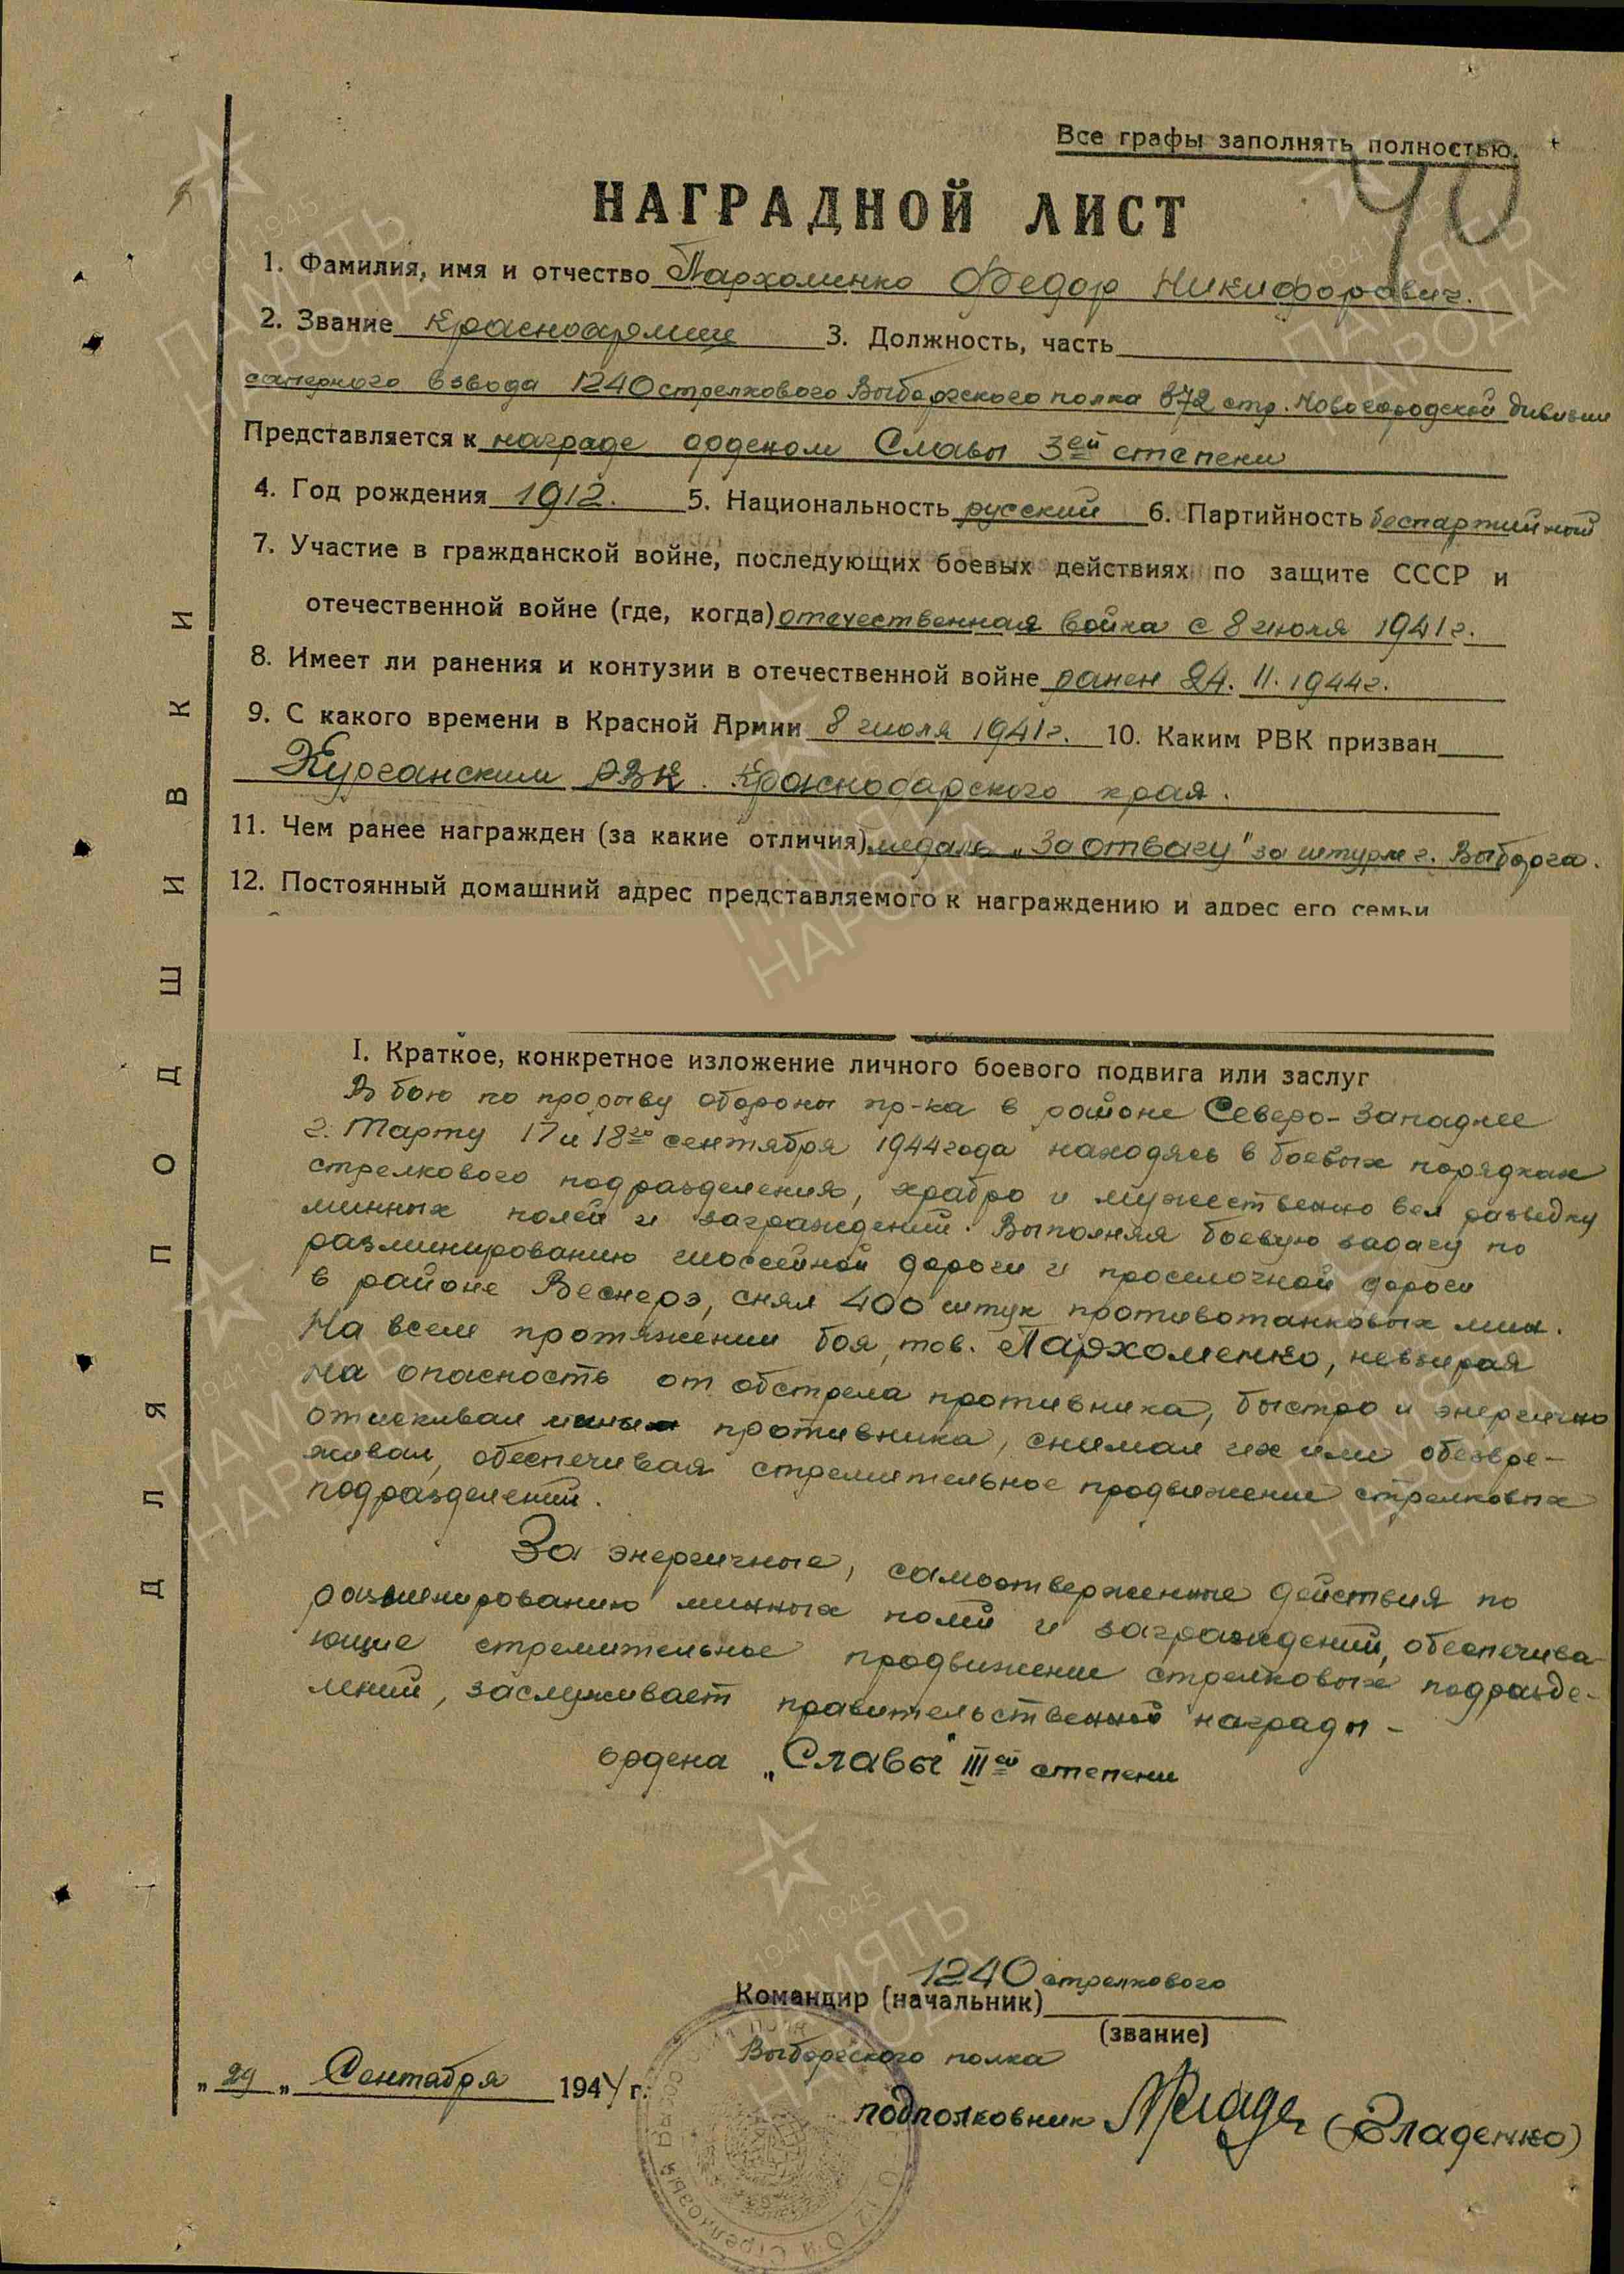 Все графы заполнять полностью.
40
НАГРАДНОЙ ЛИСТ
1. Фамилия, имя и отчество Пархоменко Федор Никифорович.
2. Звание Красноармеец 3. Должность, часть
саперного взвода 1240 стрелкового Выборгского полка 372 стр. Новогородской дивизии
Представляется к награде орденом Славы 3ей степени
4. Год рождения 1912. 5. Национальность русский 6. Партийность беспартийной
7. Участие в гражданской войне, последующих боевых действиях по защите СССР и
отечественной войне (где, когда) отечественная война с 8 июля 1941 г.
8. Имеет ли ранения и контузии в отечественной войне ранен 24. II. 1944 г.
9. С какого времени в Красной Армии 8 июля 1941 г. 10. Каким РВК призван
Курганским РВК. Краснодарского края.
11. Чем ранее награжден (за какие отличия) медаль „За отвагу" за штурм г. Выборга.
12. Постоянный домашний адрес представляемого к награждению и адрес его семьи
I. Краткое, конкретное изложение личного боевого подвига или заслуг
В бою по прорыву обороны пр-ка в районе Северо-Западнее
г. Тарту 17 и 18го сентября 1944 года находясь в боевых порядках
стрелкового подразделения, храбро и мужественно вел разведку
минных полей и заграждений. Выполняя боевую задачу по
разминированию шоссейной дороги и проселочной дороги
в районе Веснерэ, снял 400 штук противотанковых мин.
На всем протяжении боя, тов. Пархоменко, невзирая
на опасность от обстрела противника, быстро и энергично
отыскивал мины противника, снимал их или обезвре-
живал, обеспечивая стремительное продвижение стрелковых
подразделений.
За энергичные, самоотверженные действия по
разминированию минных полей и заграждений, обеспечива-
ющие стремительное продвижение стрелковых подразде-
лений, заслуживает правительственной награды -
ордена „Славы" IIIей степени
1240 стрелкового
Командир (начальник)
(звание)
Выборгского полка
„29„ Сентября 1944 г.
подполковник (Гладенко)
ДЛЯ ПОДШИВКИ
1941-1945
ПАМЯТЬ
НАРОДА